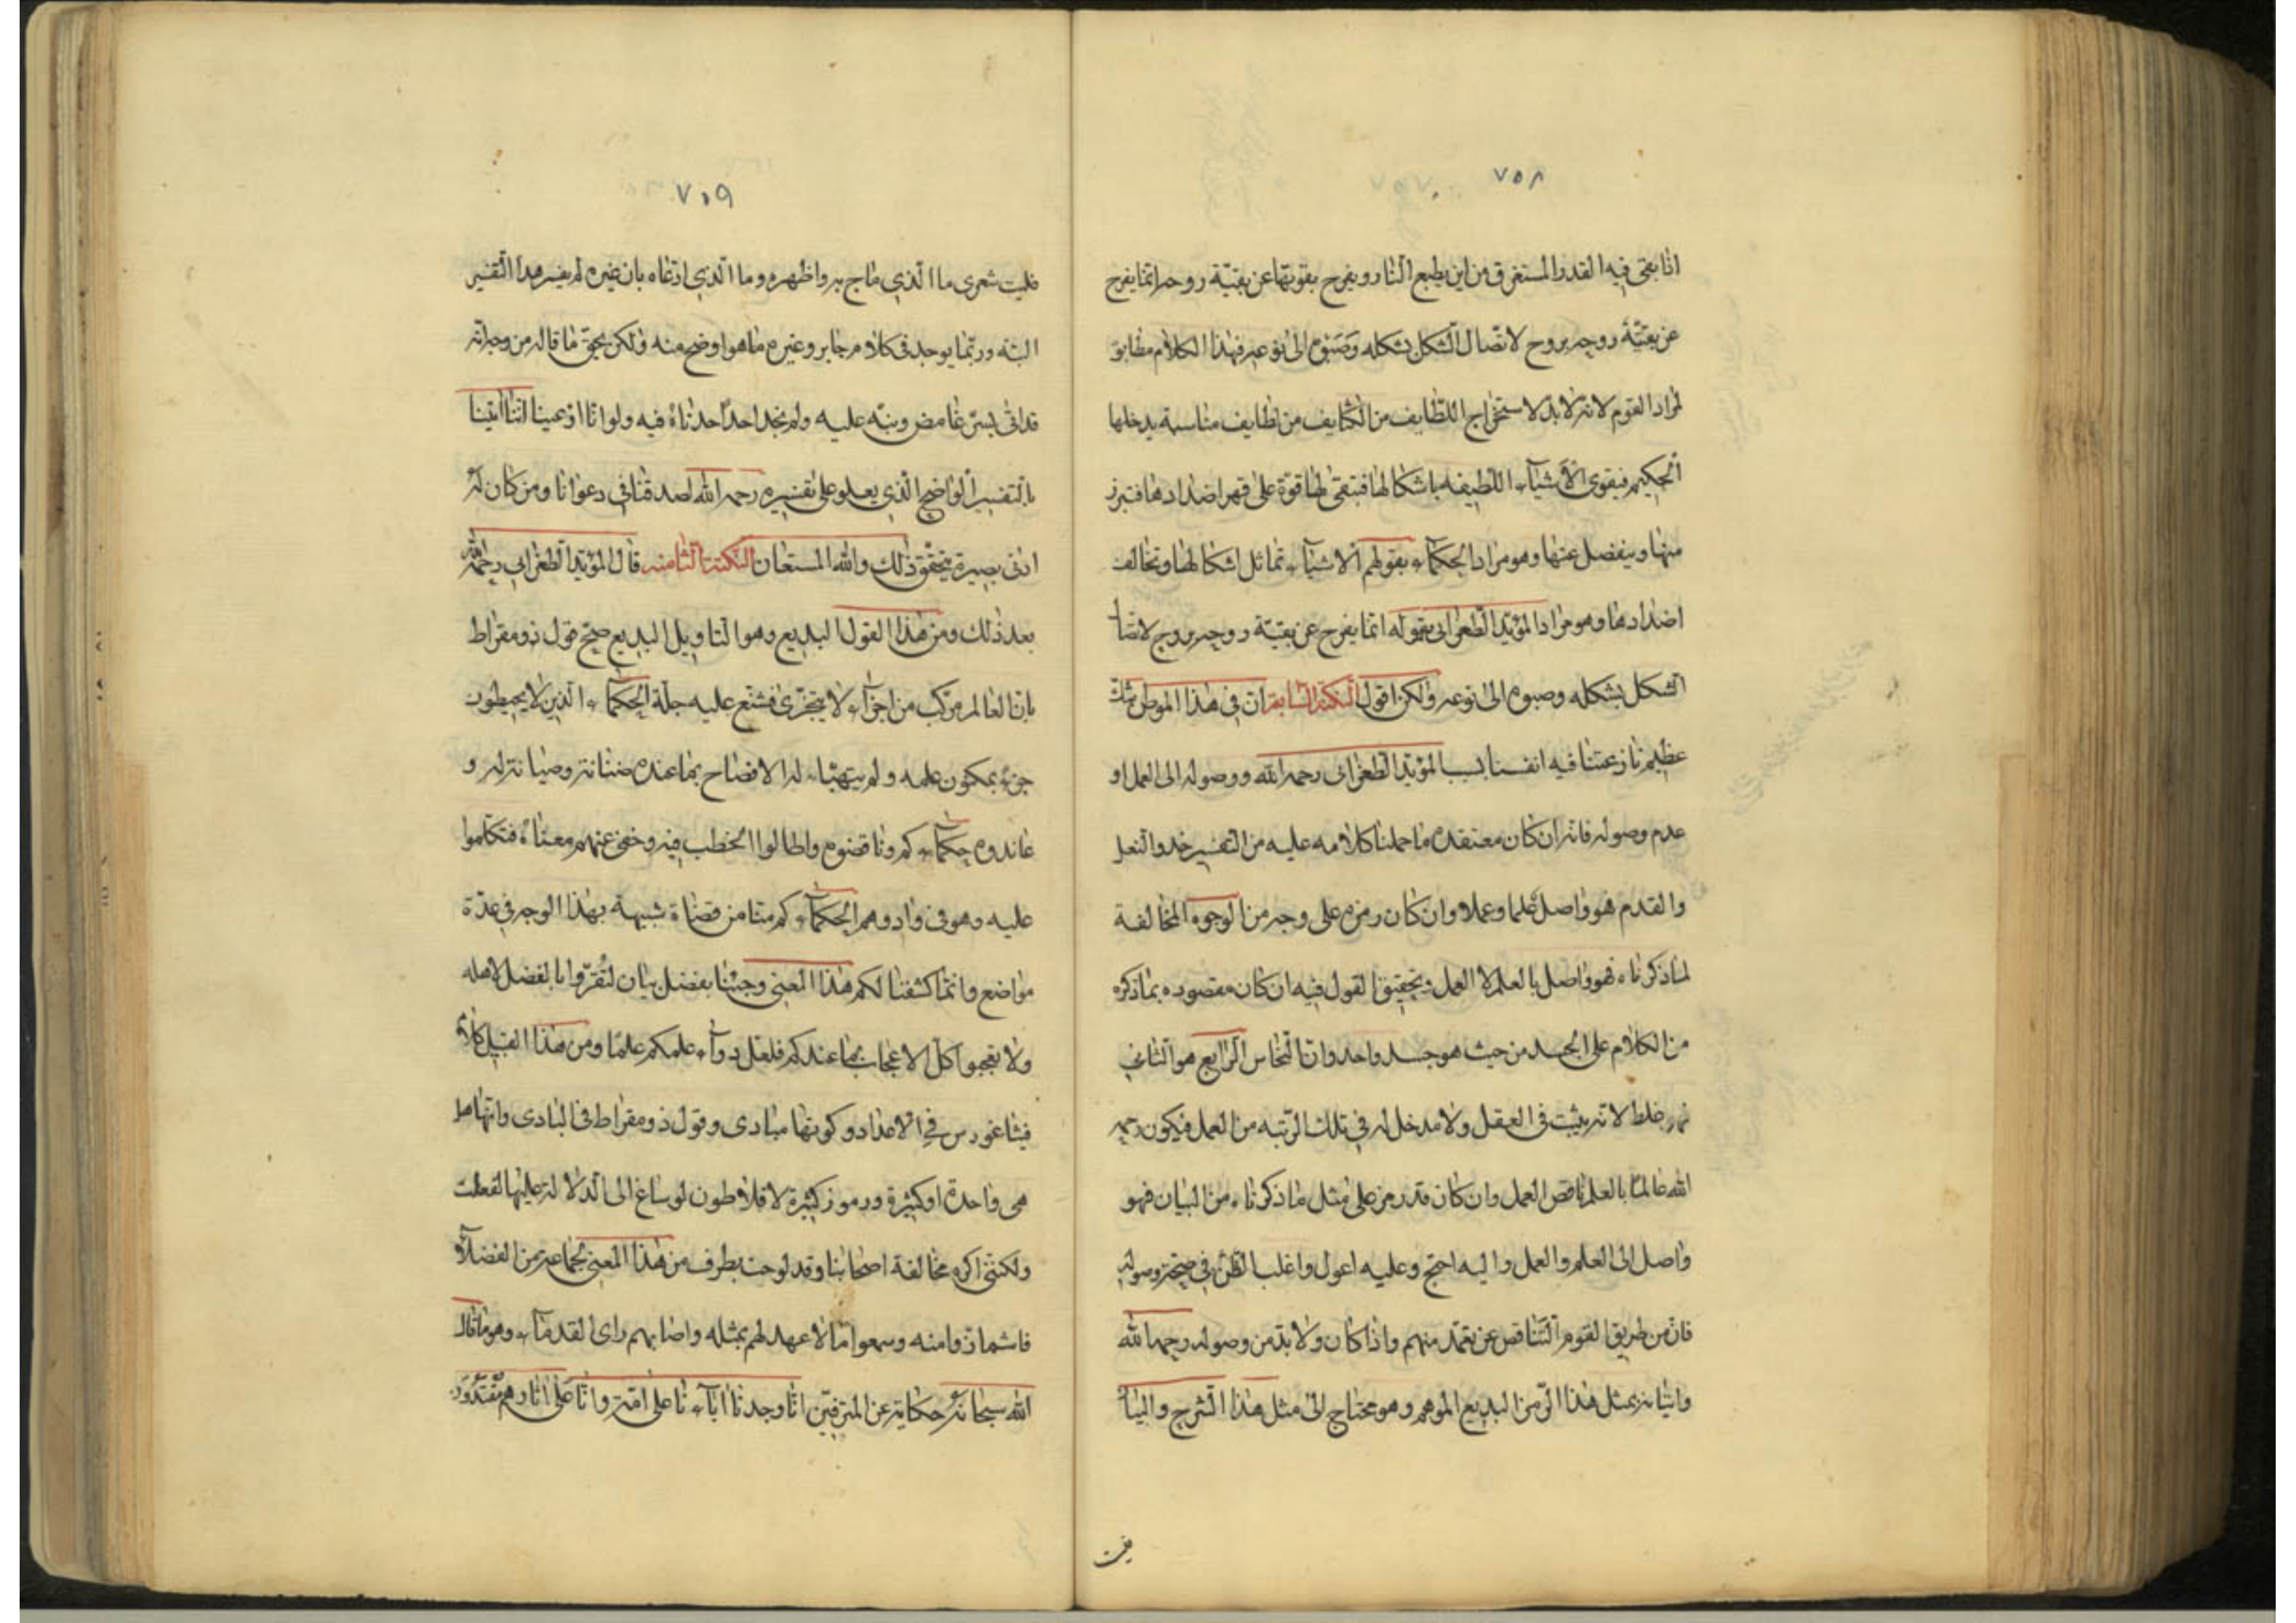 ٧٥٨
انا بقى فيه القدر المستغرق من اين يطبع النار ويفرح بقوتها عن بقيّة روحه انما يفرح
عن بقيّة روحه بروح لاتّصال الشكل بشكله وصبوه الى نوعه فهذا الكلام مطابق
لمراد القوم لانه لا بدّ لاستخراج اللطايف من الكثايف من لطايف مناسبة يدخلها
الحكيم فيقوى الاشياء اللطيفه باشكالها فتبقى لها قوة على قهر اضدادها فتبرز
منها وينفصل عنها وهو مراد الحكماء بقولهم الاشياء تماثل اشكالها وتخالف
اضدادها وهو مراد المؤيد الطغرائى بقوله انما يفرح عن بقيّة روحه بروح لاتصال
الشكل بشكله وصبوه الى نوعه ولكن اقول النكتة السابعة ان فى هذا الموطن شك
عظيم نازعتنا فيه انفسنا المؤيد الطغرائى رحمه الله ووصوله الى العمل او
عدم وصوله فانه ان كان معتقده ما حملنا كلامه عليه من التفسير حذو النعل
والقدم فهو واصل علما وعملا وان كان رمزه على وجه من الوجوه المخالفة
لما ذكرناه فهو واصل بالعلم لا العمل وتحقيق القول فيه ان كان مقصوده بما ذكره
من الكلام على الجسد من حيث هو جسد واحد وان النحاس الرابع هو الثانى
فهو خلط لانه يثبت فى العقل ولا مدخل له فى تلك الرتبه من العمل فيكون رحمه
الله عالما بالعلم ناقص العمل وان كان قد رمز على مثل ما ذكرناه من البيان فهو
واصل الى العلم والعمل واليه احتج وعليه اعول واغلب الظن فى صحة وصوله
فان من طريق القوم التناقص عن تعمّد منهم واذا كان ولا بد من وصوله رحمه الله
واتيانه بمثل هذا الرمز البديع الموهم وهو محتاج الى مثل هذا الشرح والبيان
فليت
٧٥٩
فليت شعرى ما الذي ماج به واظهره وما الذي ادعاه بان غيره لم يفسر هذا التفسير
البته وربّما يوجد فى كلام جابر وغيره ما هو اوضح منه ولكن بحق ما قاله من وجه انه
قد اتى بسرّ غامض ونبّه عليه ولم نجد احدا حدثناه فيه ولو انا ادعينا اننا اتينا
بالتفسير الواضح الذي يعلو على تفسيره رحمه الله لصدقنا فى دعوانا ومن كان له
ادنى بصيرة يتحقّق ذلك والله المستعان النكتة الثامنه قال المؤيد الطغرائى رحمه الله
بعد ذلك ومن هذا القول البديع وهو التاويل البديع صحّ قول ذومقراط
بان العالم مركّب من اجزاء لا يتجزّى فشنع عليه جلّة الحكماء الذين لا يحيطون
جزء بمكنون علمه ولم يتهيّاء له الافصاح بما عنده ضنانة وصيانة له و
عاندوه حكماءكم وناقضوه واطالوا الخطب فيه وخفى عنهم معناه فتكلموا
عليه وهو فى واد وهم الحكماء كم متنا من قضاة شبيهة بهذا الوجه فى عدّة
مواضع وانما كشفنا لكم هذا المعنى وجئنا بفضل بيان لتقرّوا بالفضل لاهله
ولا تعجبوا كل الاعجاب بما عندكم فلعل دواء علمكم علما ومن هذا القبيل كلام
فيثاغورس فى الاعداد وكونها مبادى وقول ذومقراط فى البادى وانها هل
هى واحدة او كثيرة ورموز كثيرة لافلاطون لو ساغ الى الدلالة عليها لفعلت
ولكننى اكره مخالفة اصحابنا وقد لوحت بطرف من هذا المعنى لجماعة من الفضلاء
فاشمازوا منه وسمعوا ما لا عهد لهم بمثله واصابهم راى القدماء وهو ما قال
الله سبحانه حكاية عن المترفين انا وجدنا اباءنا على امّة وانا على اثارهم مقتدون